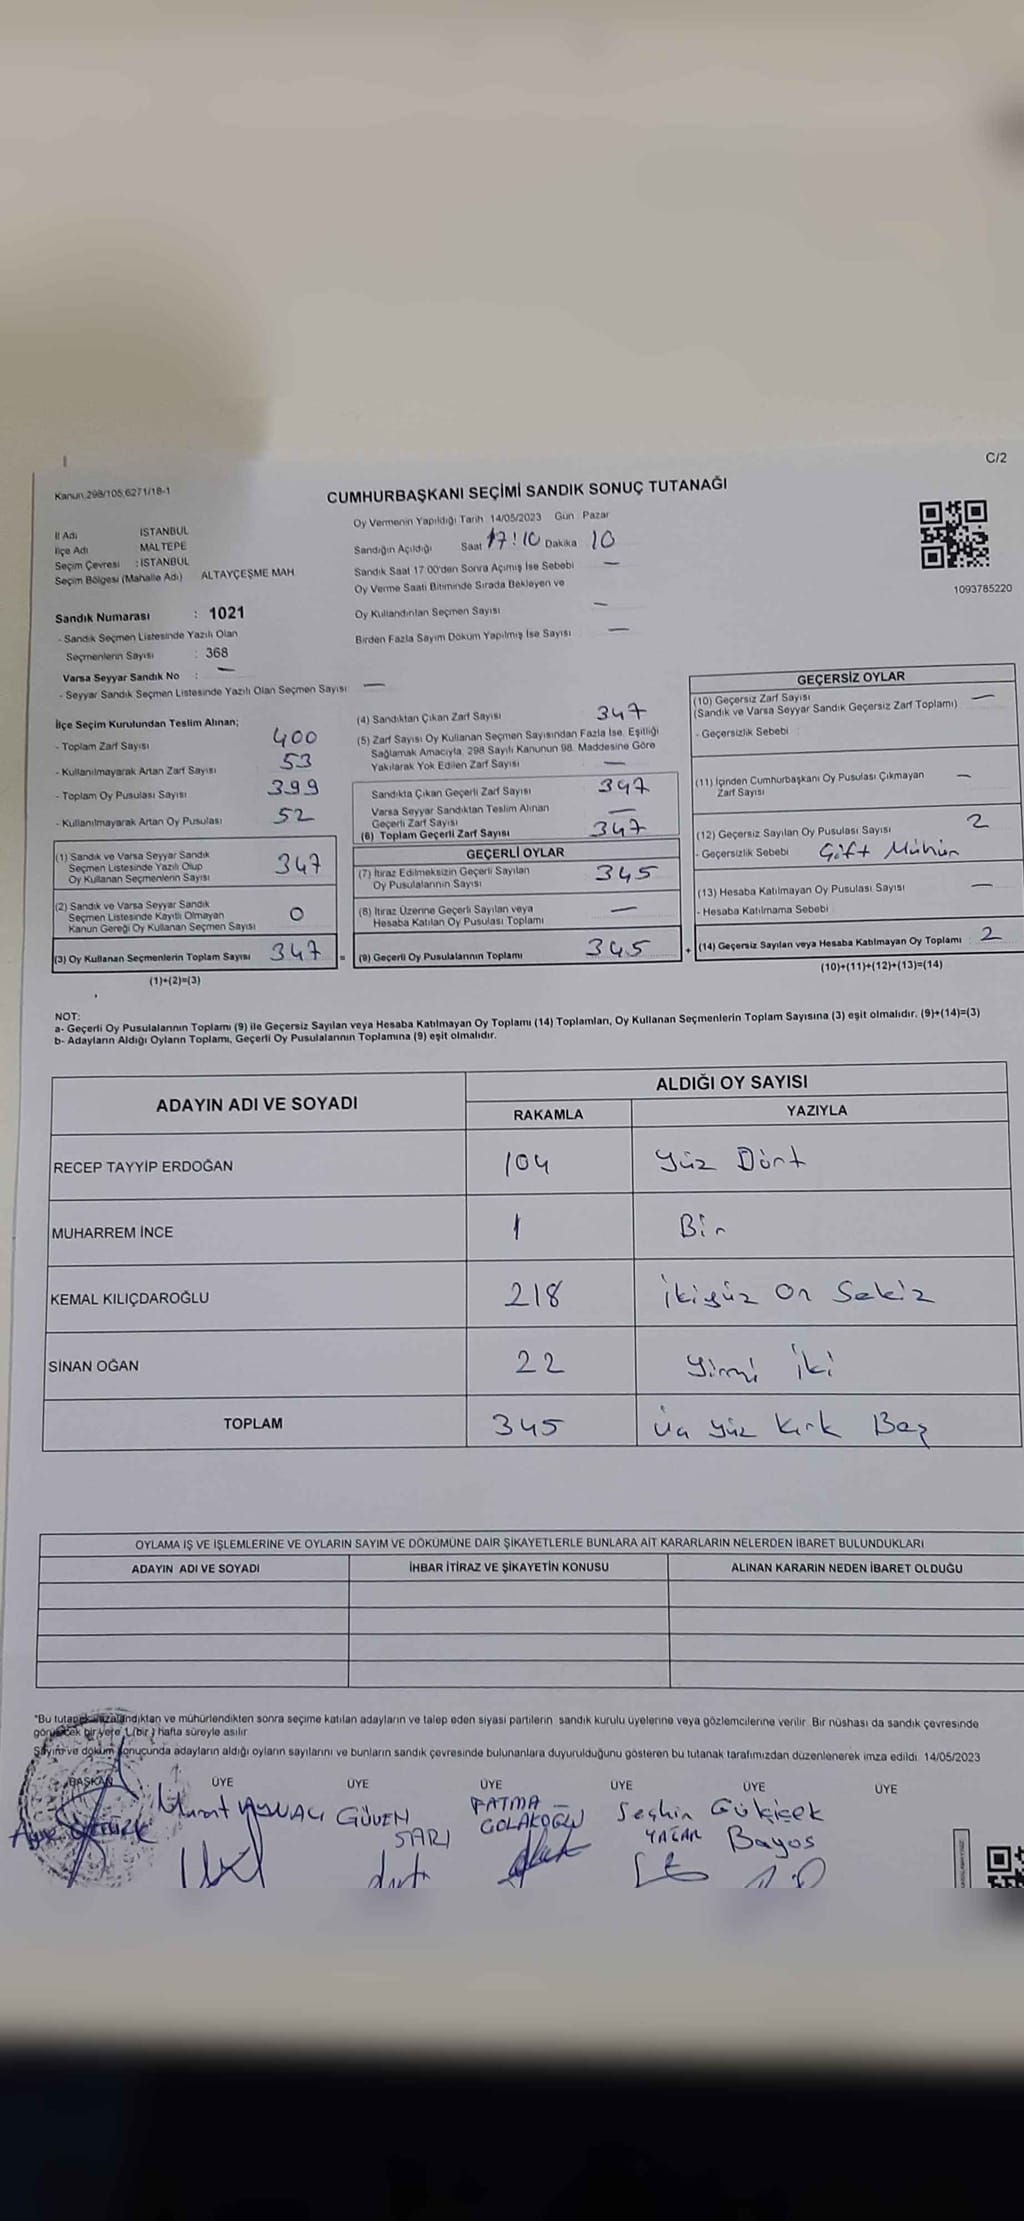 C/2
Kanun 298/105,6271/18-1
CUMHURBAŞKANI SEÇİMİ SANDIK SONUÇ TUTANAĞI
İl Adı İSTANBUL
İlçe Adı MALTEPE
Seçim Çevresi : İSTANBUL
Seçim Bölgesi (Mahalle Adı) ALTAYÇEŞME MAH.
Oy Vermenin Yapıldığı Tarih 14/05/2023 Gün Pazar
Sandığın Açıldığı Saat 17:10 Dakika 10
Sandık Saat 17:00'den Sonra Açımış İse Sebebi —
Oy Verme Saati Bitiminde Sırada Bekleyen ve
Oy Kullandırılan Seçmen Sayısı —
Birden Fazla Sayım Döküm Yapılmış İse Sayısı —
1093785220
Sandık Numarası : 1021
- Sandık Seçmen Listesinde Yazılı Olan
Seçmenlerin Sayısı : 368
Varsa Seyyar Sandık No : —
- Seyyar Sandık Seçmen Listesinde Yazılı Olan Seçmen Sayısı —
İlçe Seçim Kurulundan Teslim Alınan;
- Toplam Zarf Sayısı 400
- Kullanılmayarak Artan Zarf Sayısı 53
- Toplam Oy Pusulası Sayısı 399
- Kullanılmayarak Artan Oy Pusulası 52
(1) Sandık ve Varsa Seyyar Sandık
Seçmen Listesinde Yazılı Olup
Oy Kullanan Seçmenlerin Sayısı 347
(2) Sandık ve Varsa Seyyar Sandık
Seçmen Listesinde Kayıtlı Olmayan
Kanun Gereği Oy Kullanan Seçmen Sayısı 0
(3) Oy Kullanan Seçmenlerin Toplam Sayısı 347 =
(1)+(2)=(3)
(4) Sandıktan Çıkan Zarf Sayısı 347
(5) Zarf Sayısı Oy Kullanan Seçmen Sayısından Fazla İse, Eşitliği
Sağlamak Amacıyla, 298 Sayılı Kanunun 98. Maddesine Göre
Yakılarak Yok Edilen Zarf Sayısı —
Sandıkta Çıkan Geçerli Zarf Sayısı 347
Varsa Seyyar Sandıktan Teslim Alınan
Geçerli Zarf Sayısı —
(6) Toplam Geçerli Zarf Sayısı 347
GEÇERLİ OYLAR
(7) İtiraz Edilmeksizin Geçerli Sayılan
Oy Pusulalarının Sayısı 345
(8) İtiraz Üzerine Geçerli Sayılan veya
Hesaba Katılan Oy Pusulası Toplamı —
(9) Geçerli Oy Pusulalarının Toplamı 345 +
GEÇERSİZ OYLAR
(10) Geçersiz Zarf Sayısı —
(Sandık ve Varsa Seyyar Sandık Geçersiz Zarf Toplamı)
- Geçersizlik Sebebi
(11) İçinden Cumhurbaşkanı Oy Pusulası Çıkmayan —
Zarf Sayısı
(12) Geçersiz Sayılan Oy Pusulası Sayısı 2
- Geçersizlik Sebebi Çift Mühür
(13) Hesaba Katılmayan Oy Pusulası Sayısı —
- Hesaba Katılmama Sebebi
(14) Geçersiz Sayılan veya Hesaba Katılmayan Oy Toplamı : 2
(10)+(11)+(12)+(13)=(14)
NOT:
a- Geçerli Oy Pusulalarının Toplamı (9) ile Geçersiz Sayılan veya Hesaba Katılmayan Oy Toplamı (14) Toplamları, Oy Kullanan Seçmenlerin Toplam Sayısına (3) eşit olmalıdır. (9)+(14)=(3)
b- Adayların Aldığı Oyların Toplamı, Geçerli Oy Pusulalarının Toplamına (9) eşit olmalıdır.
ADAYIN ADI VE SOYADI ALDIĞI OY SAYISI
RAKAMLA YAZIYLA
RECEP TAYYİP ERDOĞAN 104 Yüz Dört
MUHARREM İNCE 1 Bir
KEMAL KILIÇDAROĞLU 218 İkiyüz On Sekiz
SİNAN OĞAN 22 Yirmi İki
TOPLAM 345 Üç Yüz Kırk Beş
OYLAMA İŞ VE İŞLEMLERİNE VE OYLARIN SAYIM VE DÖKÜMÜNE DAİR ŞİKAYETLERLE BUNLARA AİT KARARLARIN NELERDEN İBARET BULUNDUKLARI
ADAYIN ADI VE SOYADI İHBAR İTİRAZ VE ŞİKAYETİN KONUSU ALINAN KARARIN NEDEN İBARET OLDUĞU
"Bu tutanak imzalandıktan ve mühürlendikten sonra seçime katılan adayların ve talep eden siyasi partilerin sandık kurulu üyelerine veya gözlemcilerine verilir. Bir nüshası da sandık çevresinde
görülecek bir yere 1 (bir) hafta süreyle asılır.
Sayım ve döküm sonucunda adayların aldığı oyların sayılarını ve bunların sandık çevresinde bulunanlara duyurulduğunu gösteren bu tutanak tarafımızdan düzenlenerek imza edildi. 14/05/2023
BAŞKAN ÜYE ÜYE ÜYE ÜYE ÜYE ÜYE
Murat GÜVEN SARI FATMA ÇOLAKOĞLU Seçkin YAZAR Gökçiçek Bayos